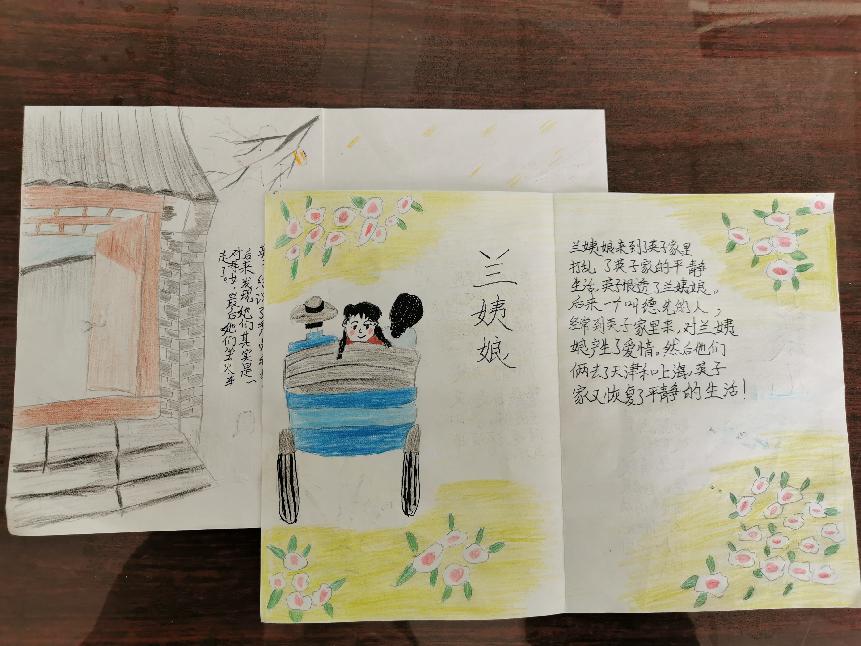 后来发现她们其实是一
对母女，最后她们坐火车
走了。
兰姨娘
兰姨娘来到了英子家里
打乱了英子家的平静
生活，英子恨透了兰姨娘。
后来一个叫德先的人，
经常到英子家里来，对兰姨
娘产生了爱情。然后他们
俩去了天津和上海，英子
家又恢复了平静的生活！